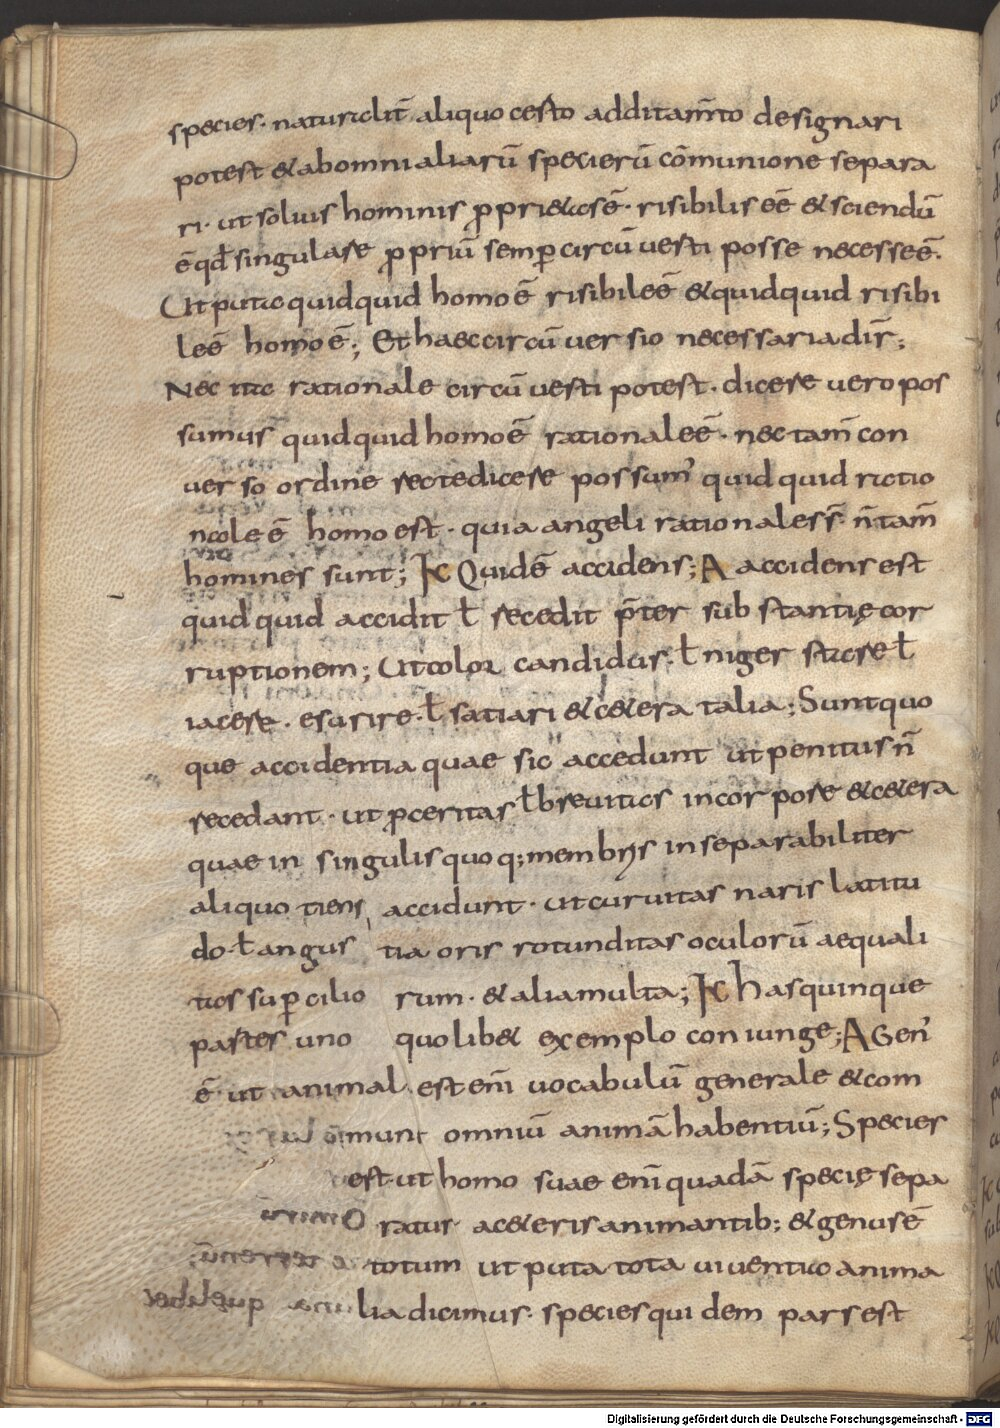 species · naturalit̄ aliquo certo additam̄to designari
potest & ab omni aliarū specierū cōmunione separa
ri · ut solius hominis ꝓpri&as ē · risibilis eē & sciendū
ē qđ singulare ꝓpriū semꝑ circūuerti posse necesse ē ·
Ut puta quidquid homo ē risibile ē & quidquid risibi
le ē homo ē ; Et haec circūuersio necessaria dir̄ ;
Nec ita rationale circūuerti potest · dicere uero pos
sumus quidquid homo ē rationale ē · nec tam̄ con
uerso ordine recte dicere possumʼ quidquid ratio
nale ē homo est · quia angeli rationales s̄ · n̄ tam̄
homines sunt ; K Quid ē accidens ; A accidens est
quidquid accidit ł recedit p̄ter substantię cor
ruptionem ; Ut color candidus · ł niger stare ł
iacere · esurire · ł satiari & c&era talia ; Sunt quo
que accidentia quae sic accedunt ut penitus n̄
recedant · ut ꝓceritas ł breuitas in corpore & c&era
quae in singulis quoq; membris inseparabiliter
aliquotiens accidunt · ut curuitas naris latitu
do · ł angustia oris rotunditas oculorū aequali
tas suꝑciliorum · & alia multa ; K has quinque
partes uno quolib& exemplo coniunge ; A Genʼ
ē · ut animal · est eni̅ uocabulū generale & com
mune omniū animā habentiū ; Species
est · ut homo suae eni̅ quadā specię sepa
ratur a c&eris animantib; & genus ē
totum ut puta tota uiuentia anima
lia dicimus · species quidem pars est
Digitalisierung gefördert durch die Deutsche Forschungsgemeinschaft - DFG